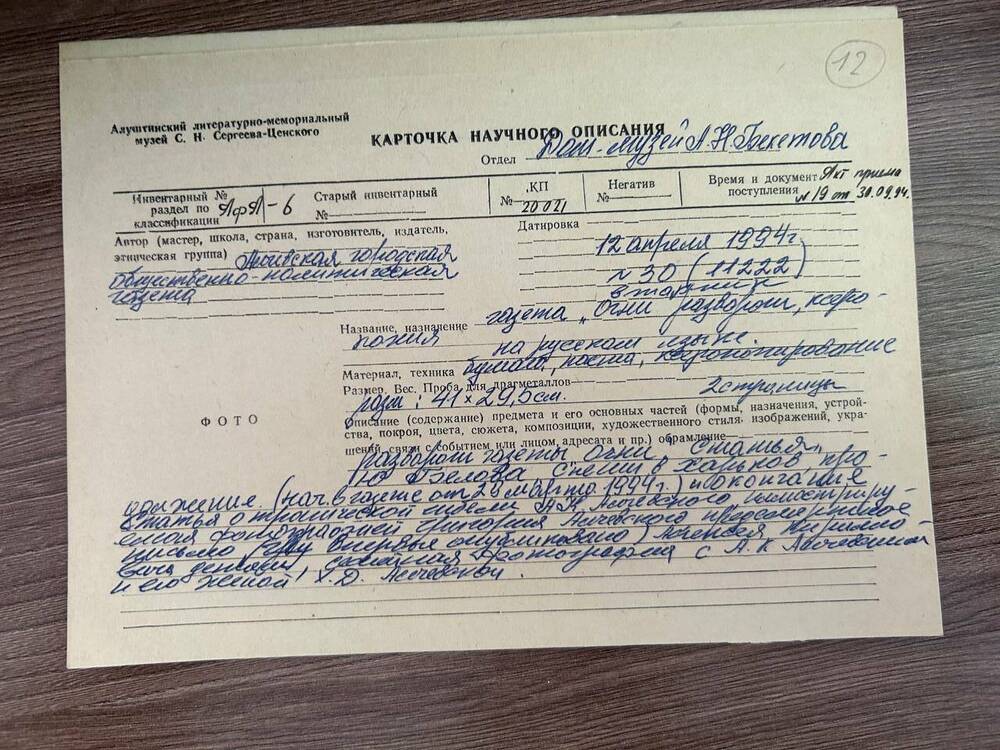 12
Алуштинский литературно-мемориальный
музей С. Н. Сергеева-Ценского
КАРТОЧКА НАУЧНОГО ОПИСАНИЯ
Отдел Дом-музей А.Н. Бекетова
Инвентарный №
раздел по
классификации ЯфЛ-6
Старый инвентарный
№
КП
№ 20021
Негатив
№
Время и документ Акт приема
поступления №19 от 30.09.94.
Автор (мастер, школа, страна, изготовитель, издатель,
этническая группа) городская
общественно-политическая
газета
Датировка
12 апреля 1994г.
№ 30 (11222)
вторник
Название, назначение газета „Огни разворот, ксеро-
копия на русском языке.
Материал, техника бумага, паста, ксерокопирование
Размер, Вес. Проба для драгметаллов 2 страницы
разм: 41 × 29,5 см.
ФОТО
Описание (содержание) предмета и его основных частей (формы, назначения, устрой-
ства, покроя, цвета, сюжета, композиции, художественного стиля, изображений, укра-
шений, связи с событием или лицом, адресата и пр.) обрамление
разворот газеты „Огни", статья
Ю Белова Спеши в Харьков, про-
должение (нач. в газете от 2 марта 1994г.) и окончание
статья о трагической гибели А.К. Алчевского иллюстриру-
емая фотографией Григория Алчевского предсмертное
письмо впервые опубликовано) Алексея Кирилло-
вича фотография с А.К Алчевским
и его женой Х.Д. Алчевской.